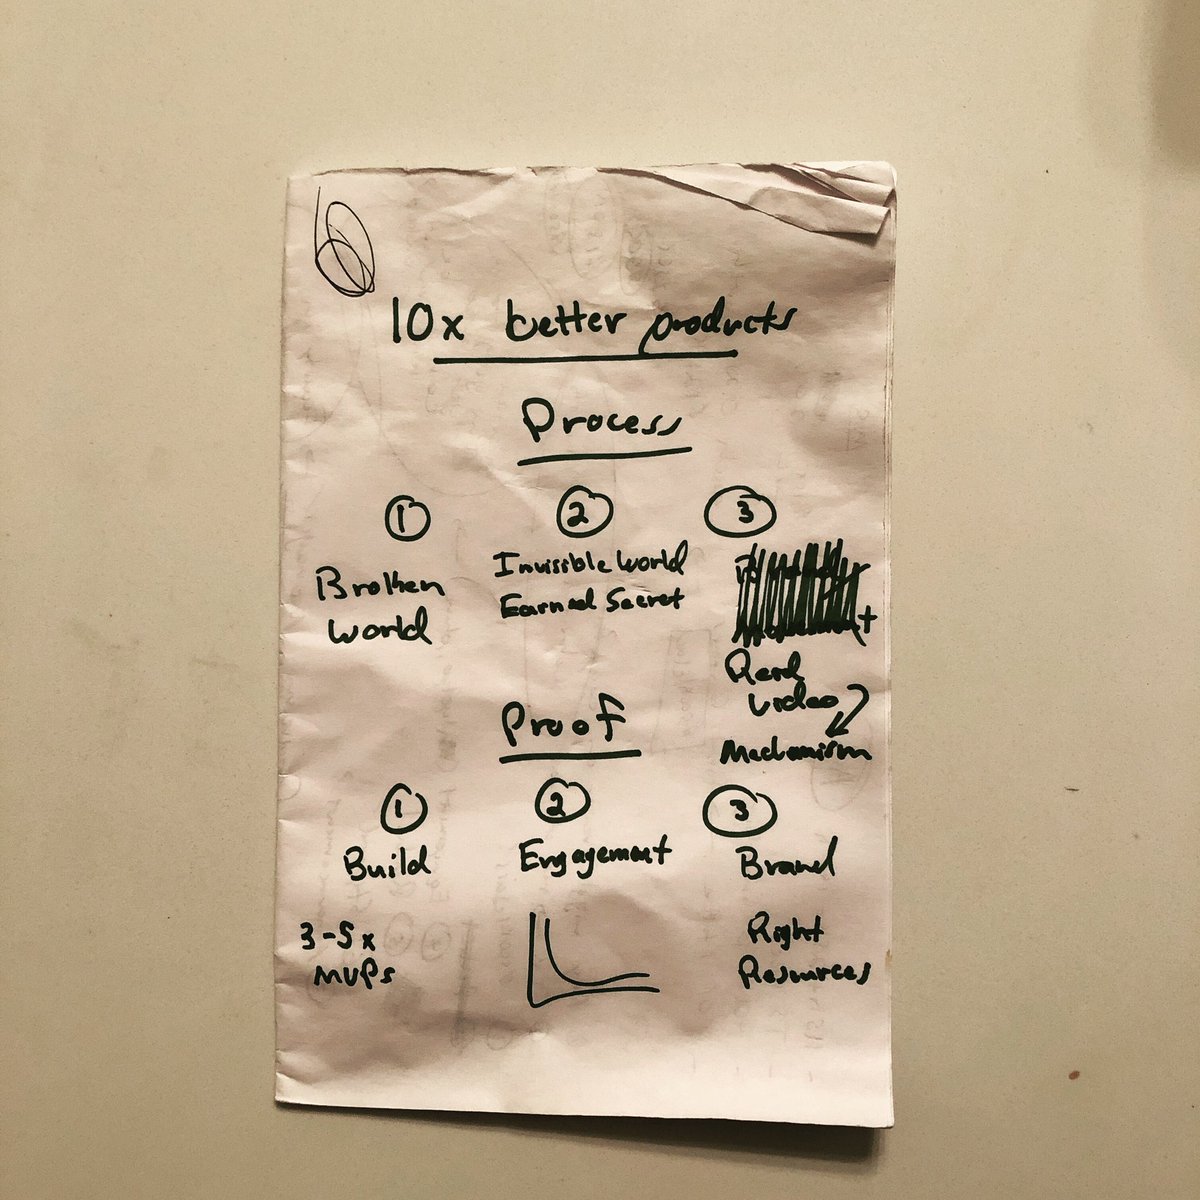 6
10x better products
Process
1 2 3
Broken
World
Invisible World
Earned Secret
video
Mechanism
Proof
1 2 3
Build Engagement Brand
3-5x
MVPs
Right
Resources